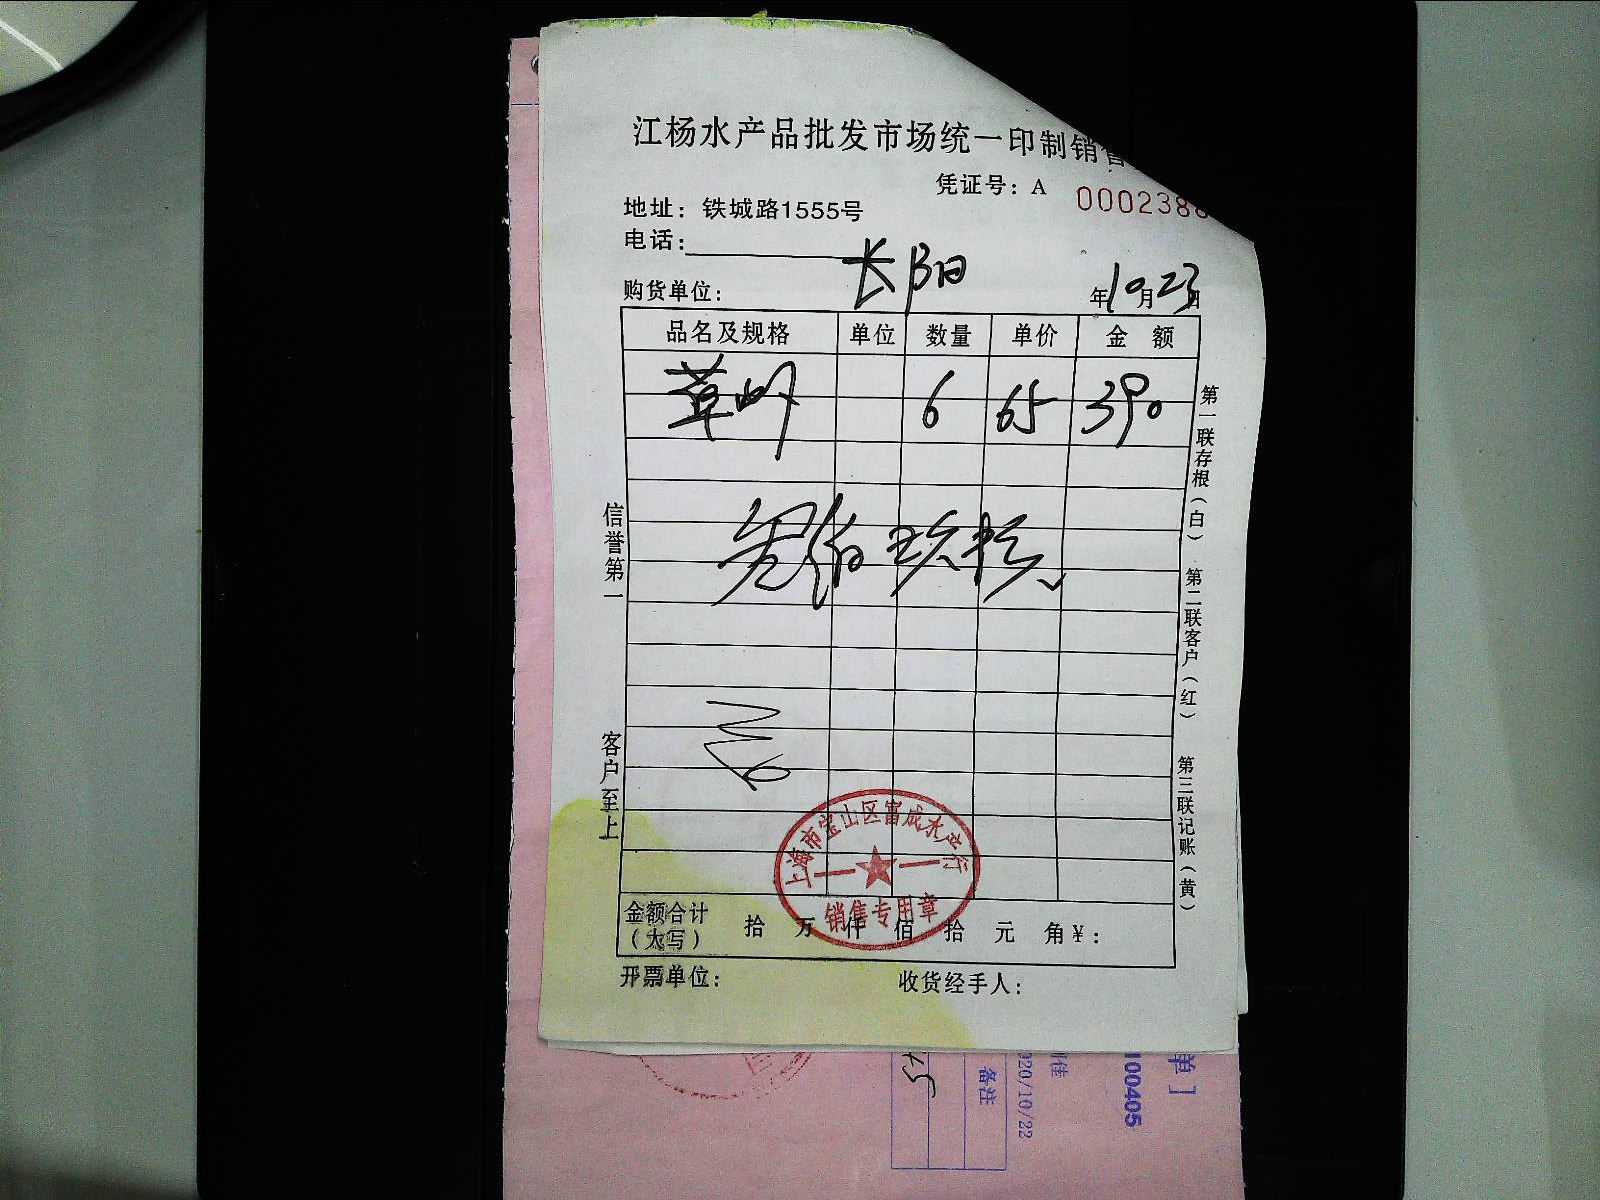 江杨水产品批发市场统一印制销售
凭证号：A 0002388
地址：铁城路1555号
电话：
购货单位： 长阳 年10月23日
品名及规格 单位 数量 单价 金额
草虾 6 65 390
叁佰玖拾
信誉第一
客户至上
第一联存根（白） 第二联客户（红） 第三联记账（黄）
上海市宝山区富成水产行
销售专用章
金额合计（大写） 拾 万 仟 佰 拾 元 角 ¥：
开票单位： 收货经手人：
单]
100405
020/10/22
备注